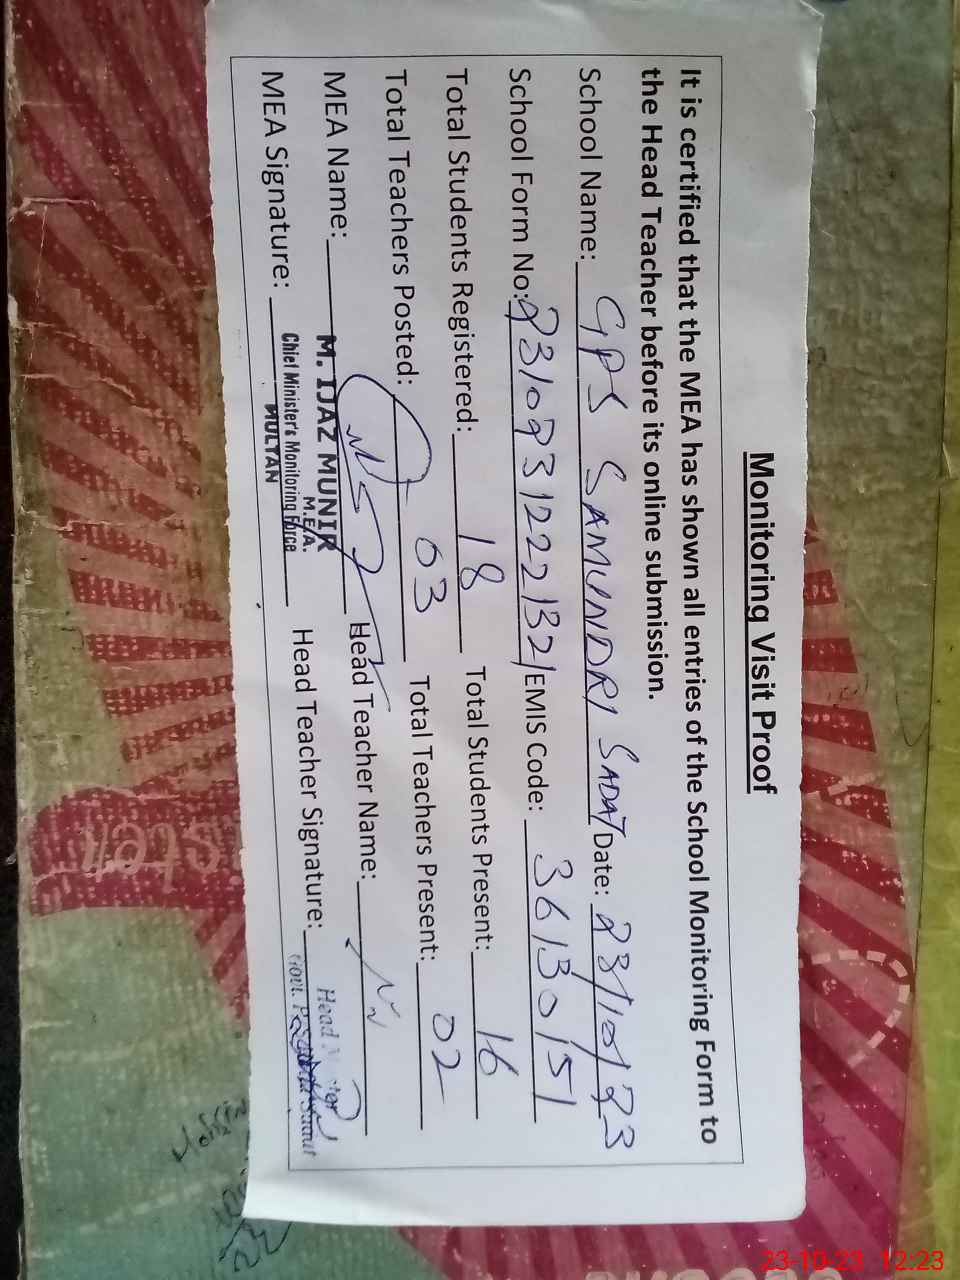 Monitoring Visit Proof
It is certified that the MEA has shown all entries of the School Monitoring Form to
the Head Teacher before its online submission.
School Name: GPS SAMUNDRI SADAT Date: 23/10/23
School Form No: 23109312221321 EMIS Code: 36130151
Total Students Registered: 18 Total Students Present: 16
Total Teachers Posted: 03 Total Teachers Present: 02
MEA Name: M. IJAZ MUNIR Head Teacher Name:
M.E.A.
MEA Signature: Chief Minister's Monitoring Force Head Teacher Signature: Head
MULTAN
Govt.
23-10-23 12:23